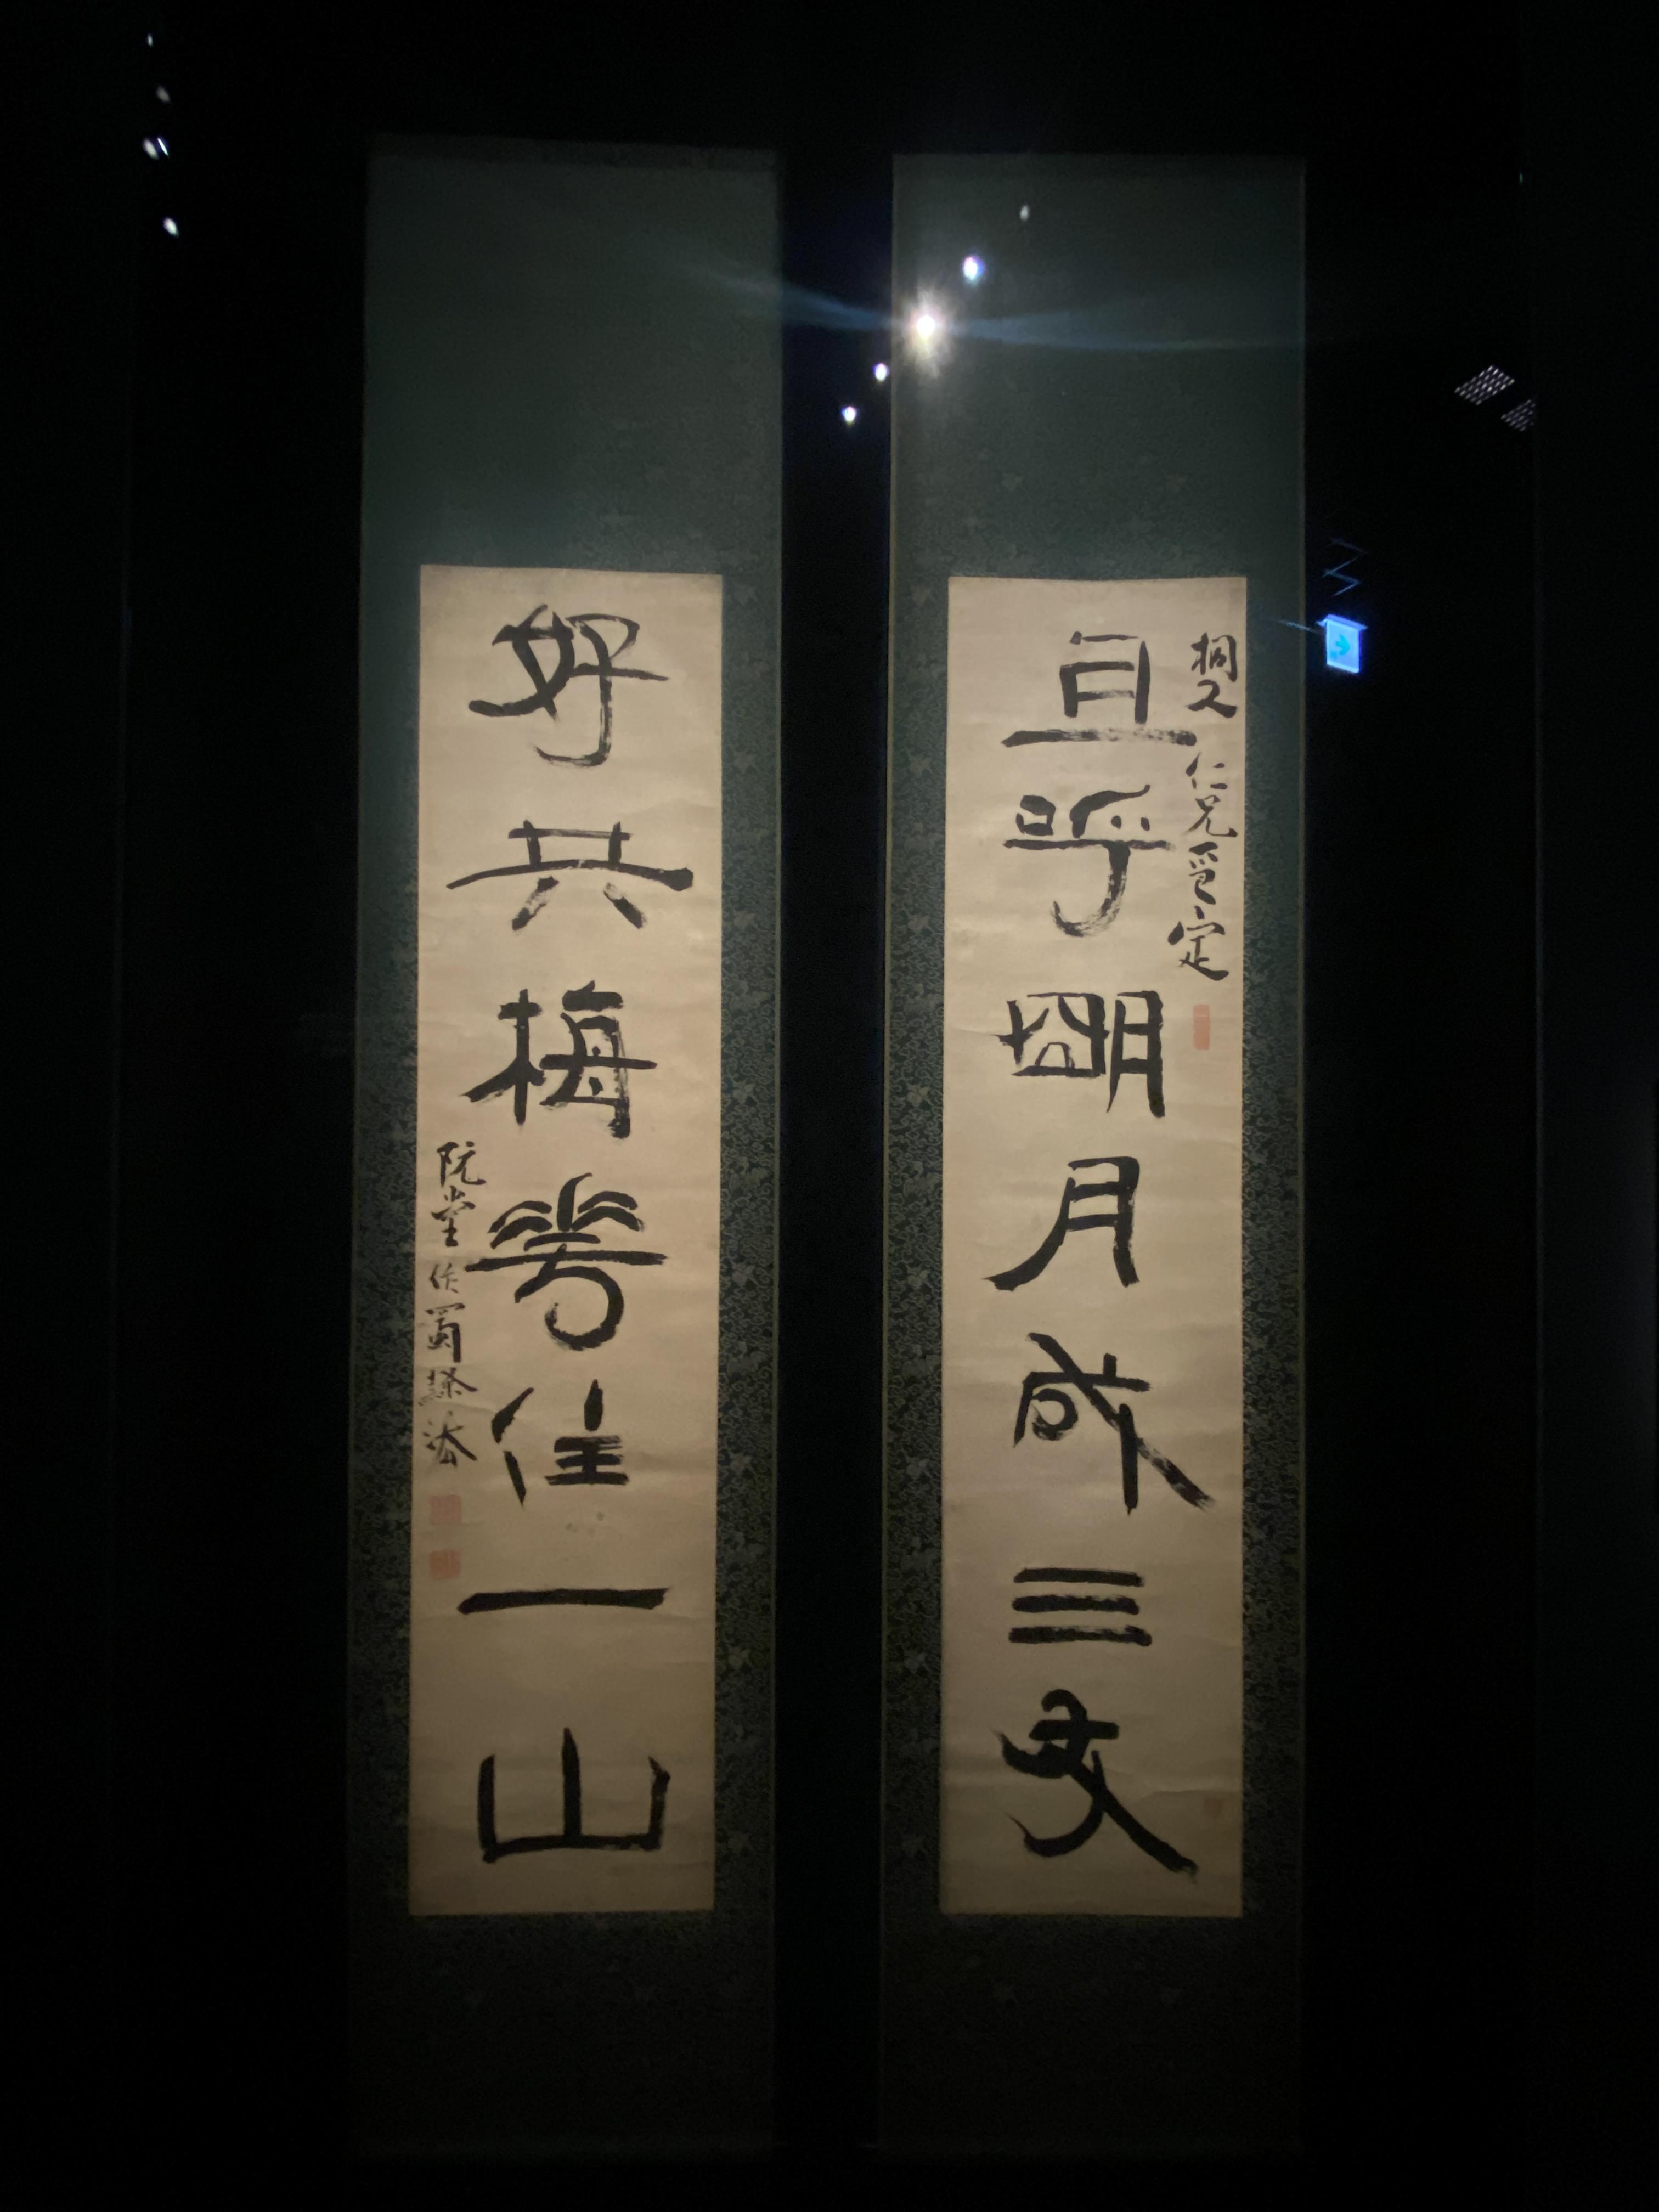 桐人仁兄定
且呼明月成三友
好共梅花住一山
阮堂作蜀隷法